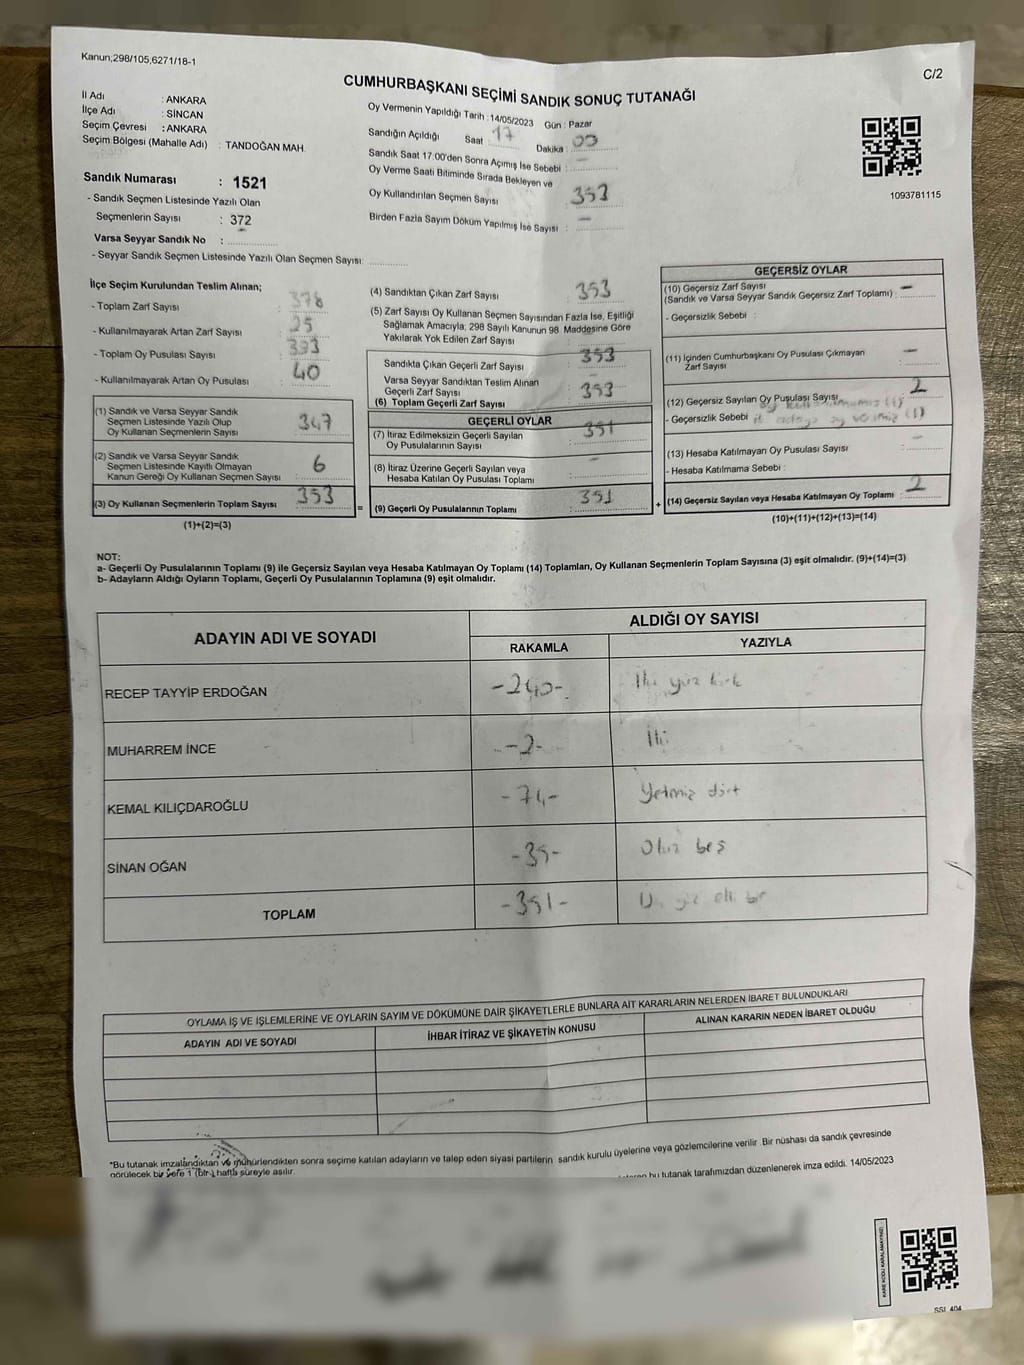 Kanun;298/105,6271/18-1
C/2
CUMHURBAŞKANI SEÇİMİ SANDIK SONUÇ TUTANAĞI
İl Adı : ANKARA
İlçe Adı : SİNCAN
Seçim Çevresi : ANKARA
Seçim Bölgesi (Mahalle Adı) : TANDOĞAN MAH.
Sandık Numarası : 1521
- Sandık Seçmen Listesinde Yazılı Olan
Seçmenlerin Sayısı : 372
Varsa Seyyar Sandık No :
- Seyyar Sandık Seçmen Listesinde Yazılı Olan Seçmen Sayısı:
Oy Vermenin Yapıldığı Tarih : 14/05/2023 Gün : Pazar
Sandığın Açıldığı Saat 17 Dakika : 00
Sandık Saat 17:00'den Sonra Açımış İse Sebebi : -
Oy Verme Saati Bitiminde Sırada Bekleyen ve
Oy Kullandırılan Seçmen Sayısı 353
Birden Fazla Sayım Döküm Yapılmış İse Sayısı : -
1093781115
İlçe Seçim Kurulundan Teslim Alınan;
- Toplam Zarf Sayısı : 378
- Kullanılmayarak Artan Zarf Sayısı : 25
- Toplam Oy Pusulası Sayısı : 393
- Kullanılmayarak Artan Oy Pusulası : 40
(1) Sandık ve Varsa Seyyar Sandık
Seçmen Listesinde Yazılı Olup
Oy Kullanan Seçmenlerin Sayısı : 347
(2) Sandık ve Varsa Seyyar Sandık
Seçmen Listesinde Kayıtlı Olmayan
Kanun Gereği Oy Kullanan Seçmen Sayısı : 6
(3) Oy Kullanan Seçmenlerin Toplam Sayısı : 353
(1)+(2)=(3)
=
(4) Sandıktan Çıkan Zarf Sayısı : 353
(5) Zarf Sayısı Oy Kullanan Seçmen Sayısından Fazla İse, Eşitliği
Sağlamak Amacıyla; 298 Sayılı Kanunun 98. Maddesine Göre
Yakılarak Yok Edilen Zarf Sayısı :
Sandıkta Çıkan Geçerli Zarf Sayısı : 353
Varsa Seyyar Sandıktan Teslim Alınan
Geçerli Zarf Sayısı :
(6) Toplam Geçerli Zarf Sayısı : 353
GEÇERLİ OYLAR
(7) İtiraz Edilmeksizin Geçerli Sayılan
Oy Pusulalarının Sayısı : 351
(8) İtiraz Üzerine Geçerli Sayılan veya
Hesaba Katılan Oy Pusulası Toplamı : -
(9) Geçerli Oy Pusulalarının Toplamı : 351
+
GEÇERSİZ OYLAR
(10) Geçersiz Zarf Sayısı
(Sandık ve Varsa Seyyar Sandık Geçersiz Zarf Toplamı) : -
- Geçersizlik Sebebi :
(11) İçinden Cumhurbaşkanı Oy Pusulası Çıkmayan
Zarf Sayısı : -
(12) Geçersiz Sayılan Oy Pusulası Sayısı : 2
- Geçersizlik Sebebi
(13) Hesaba Katılmayan Oy Pusulası Sayısı : -
- Hesaba Katılmama Sebebi :
(14) Geçersiz Sayılan veya Hesaba Katılmayan Oy Toplamı : 2
(10)+(11)+(12)+(13)=(14)
NOT:
a- Geçerli Oy Pusulalarının Toplamı (9) ile Geçersiz Sayılan veya Hesaba Katılmayan Oy Toplamı (14) Toplamları, Oy Kullanan Seçmenlerin Toplam Sayısına (3) eşit olmalıdır. (9)+(14)=(3)
b- Adayların Aldığı Oyların Toplamı, Geçerli Oy Pusulalarının Toplamına (9) eşit olmalıdır.
ADAYIN ADI VE SOYADI
ALDIĞI OY SAYISI
RAKAMLA YAZIYLA
RECEP TAYYİP ERDOĞAN -240- İki yüz kırk
MUHARREM İNCE -2- İki
KEMAL KILIÇDAROĞLU -74- Yetmiş dört
SİNAN OĞAN -35- Otuz beş
TOPLAM -351- Üç yüz elli bir
OYLAMA İŞ VE İŞLEMLERİNE VE OYLARIN SAYIM VE DÖKÜMÜNE DAİR ŞİKAYETLERLE BUNLARA AİT KARARLARIN NELERDEN İBARET BULUNDUKLARI
ADAYIN ADI VE SOYADI İHBAR İTİRAZ VE ŞİKAYETİN KONUSU ALINAN KARARIN NEDEN İBARET OLDUĞU
*Bu tutanak imzalandıktan ve mühürlendikten sonra seçime katılan adayların ve talep eden siyasi partilerin sandık kurulu üyelerine veya gözlemcilerine verilir. Bir nüshası da sandık çevresinde
görülecek bir yere 1 (bir) hafta süreyle asılır.
bu tutanak tarafımızdan düzenlenerek imza edildi. 14/05/2023
KARE KODU KARALAMAYINIZ!